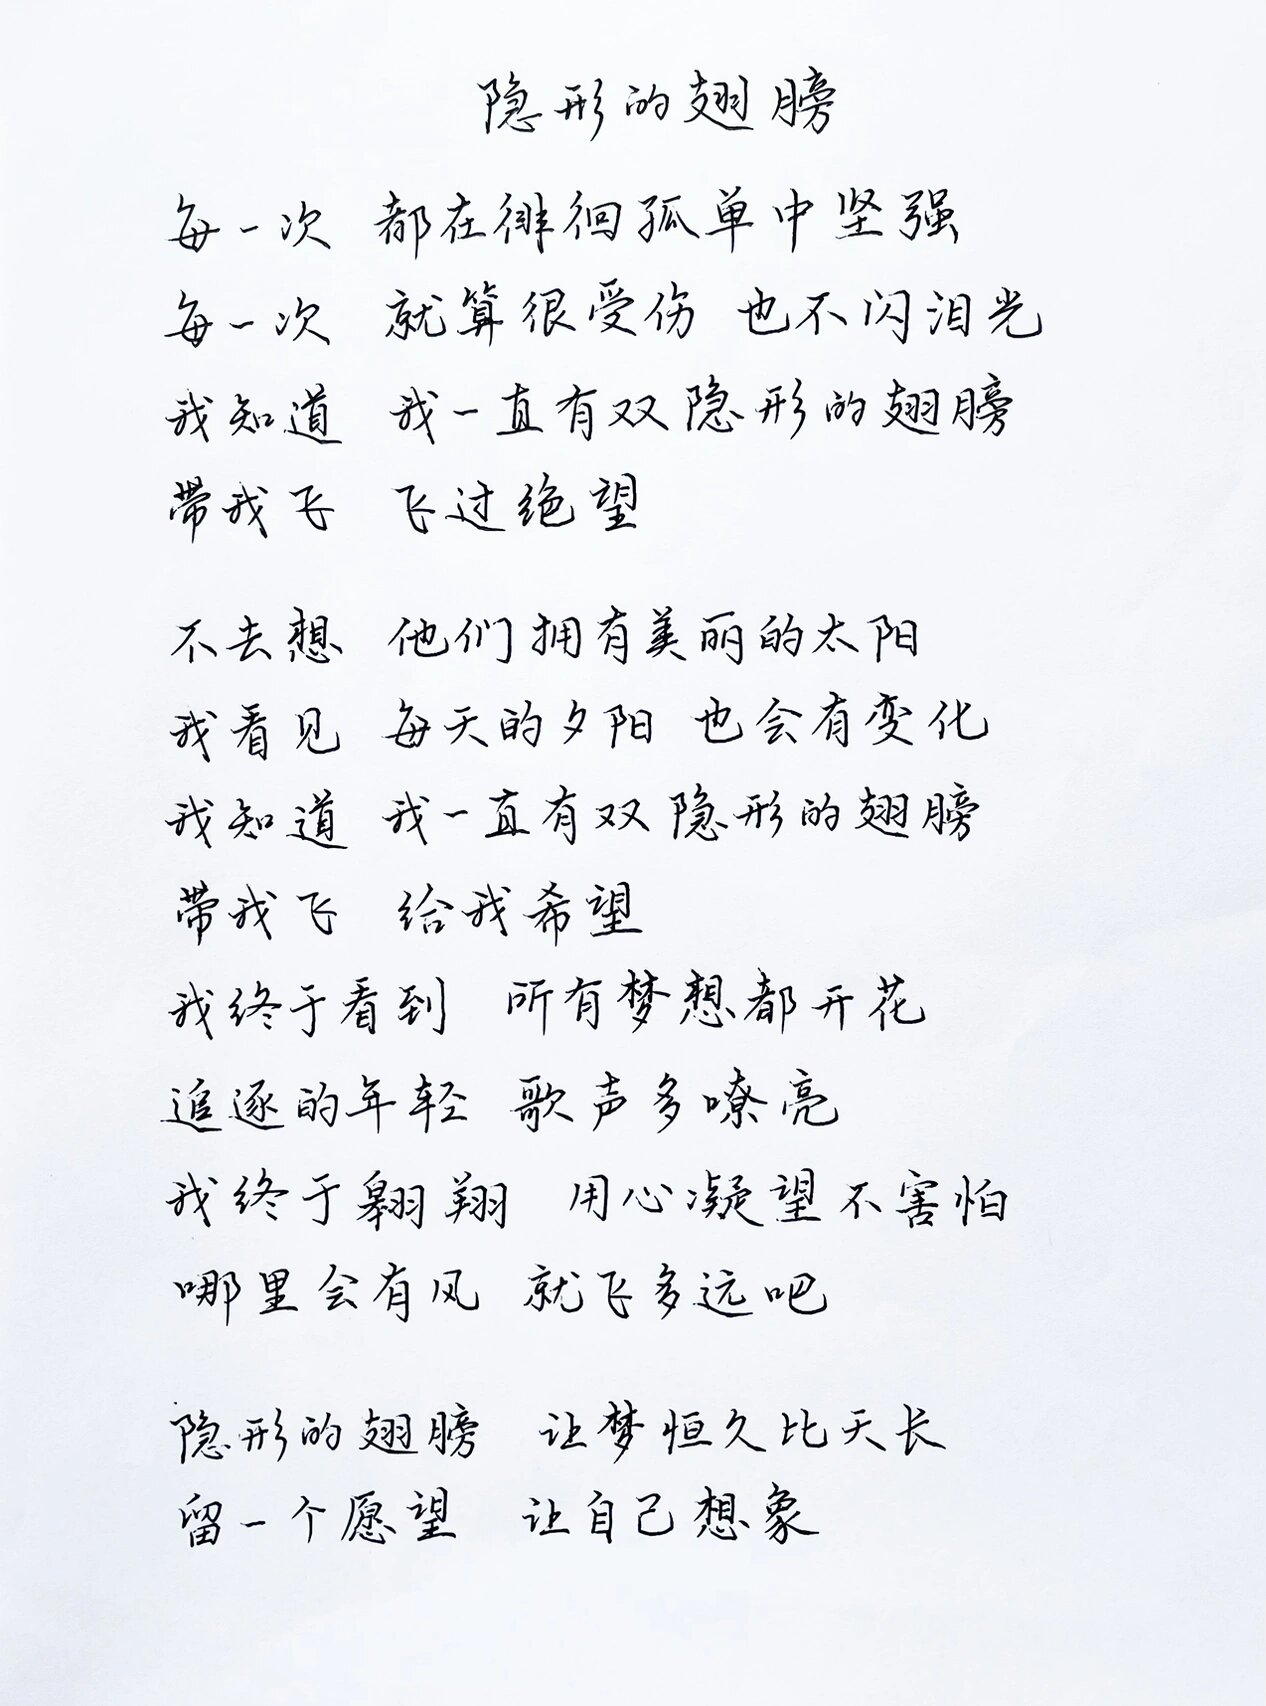 隐形的翅膀
每一次 都在徘徊孤单中坚强
每一次 就算很受伤 也不闪泪光
我知道 我一直有双隐形的翅膀
带我飞 飞过绝望
不去想 他们拥有美丽的太阳
我看见 每天的夕阳 也会有变化
我知道 我一直有双隐形的翅膀
带我飞 给我希望
我终于看到 所有梦想都开花
追逐的年轻 歌声多嘹亮
我终于翱翔 用心凝望不害怕
哪里会有风 就飞多远吧
隐形的翅膀 让梦恒久比天长
留一个愿望 让自己想象